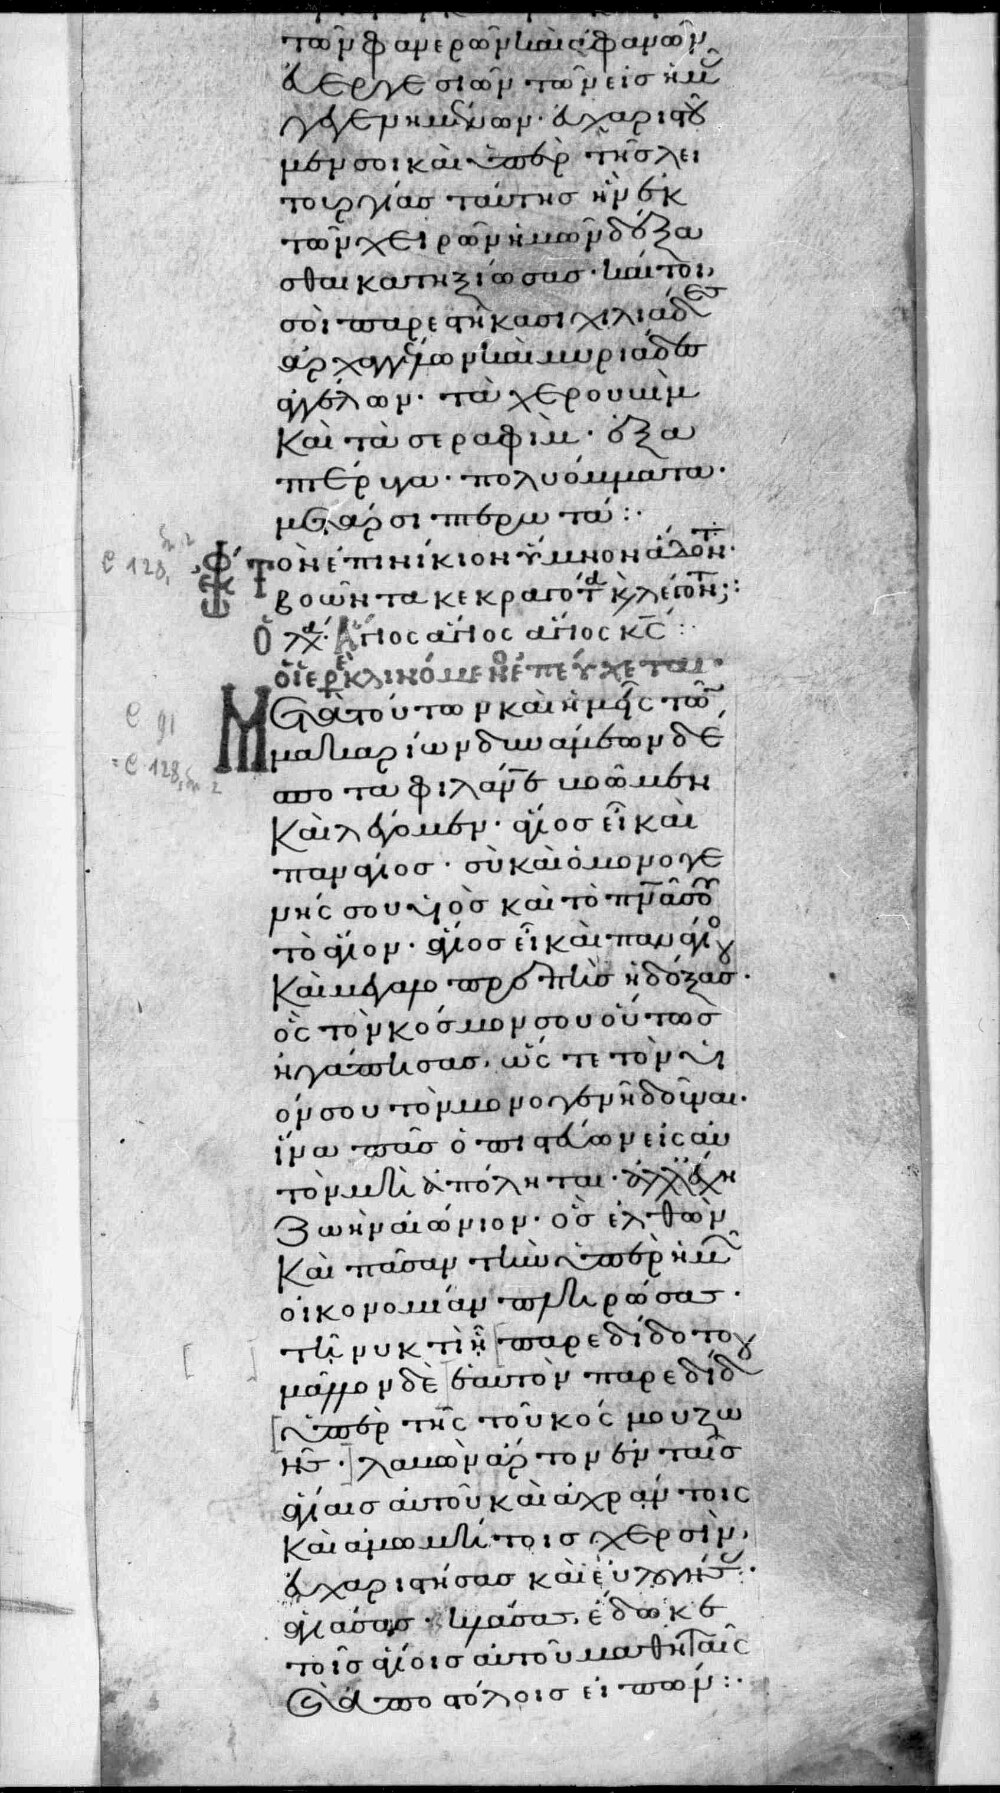 τῶν φανερῶν καὶ ἀφανῶν
εὐεργεσιῶν τῶν εἰς ἡμ(ᾶς)
γεγενημένων· εὐχαριστοῦ
μέν σοι καὶ ὑπὲρ τῆς λει
τουργίας ταύτης ἣν ἐκ
τῶν χειρῶν ἡμῶν δέξα
σθαι κατηξίωσας· καί τοι
σοὶ παρεστήκασι χιλιάδες
ἀρχαγγέλων καὶ μυριάδες
ἀγγέλων· τὰ χερουβὶμ
καὶ τὰ σεραφίμ· ἑξα
πτέρυγα· πολυόμματα·
μετάρσια πτερωτά:·
ἐκφω Τὸν ἐπινίκιον ὕμνον ἄδοντ·
βοῶντα κεκραγότα κ(αὶ) λέγοντ:·
Ὁ λα· Ἅγιος ἅγιος ἅγιος κς:
ὁ ἱερ κλινόμενο ἐπεύχεται·
Μετὰ τούτων καὶ ἡμεῖς τῶν
μακαρίων δυνάμεων δέ
σποτα φιλάνε βοῶμεν
καὶ λέγομεν· ἅγιος εἶ καὶ
πανάγιος· σὺ καὶ ὁ μονογε
νής σου υἱὸς καὶ τὸ πνᾶ σου
τὸ ἅγιον· ἅγιος εἶ καὶ πανάγιο
καὶ μεγαλοπρεπὴς ἡ δόξα σ·
ὃς τὸν κόσμον σου οὕτως
ἠγάπησας, ὥς τε τὸν υἱ
όν σου τὸν μονογενῆ δοῦναι·
ἵνα πᾶς ὁ πιστεύων εἰς αὐ
τὸν μὴ ἀπόληται· ἀλλ' ἔχη
ζωὴν αἰώνιον· ὃς ἐλθὼν
καὶ πᾶσαν τὴν ὑπὲρ ἡμ(ῶν)
οἰκονομίαν πληρώσας·
τῆ νυκτὶ ἧ [παρεδίδοτο
μᾶλλον δὲ] ἑαυτὸν παρεδίδου
[ὑπὲρ τῆς τοῦ κόσμου ζω
ῆς·] λαβὼν ἄρτον ἐν ταῖς
ἁγίαις αὐτοῦ καὶ ἀχράντοις
καὶ ἀμωμήτοις χερσίν,
εὐχαριστήσας καὶ εὐλογήσ(ας):·
ἁγιάσας· κλάσας, ἔδωκε
τοῖς ἁγίοις αὐτοῦ μαθηταῖς
καὶ ἀποστόλοις εἰπών:·